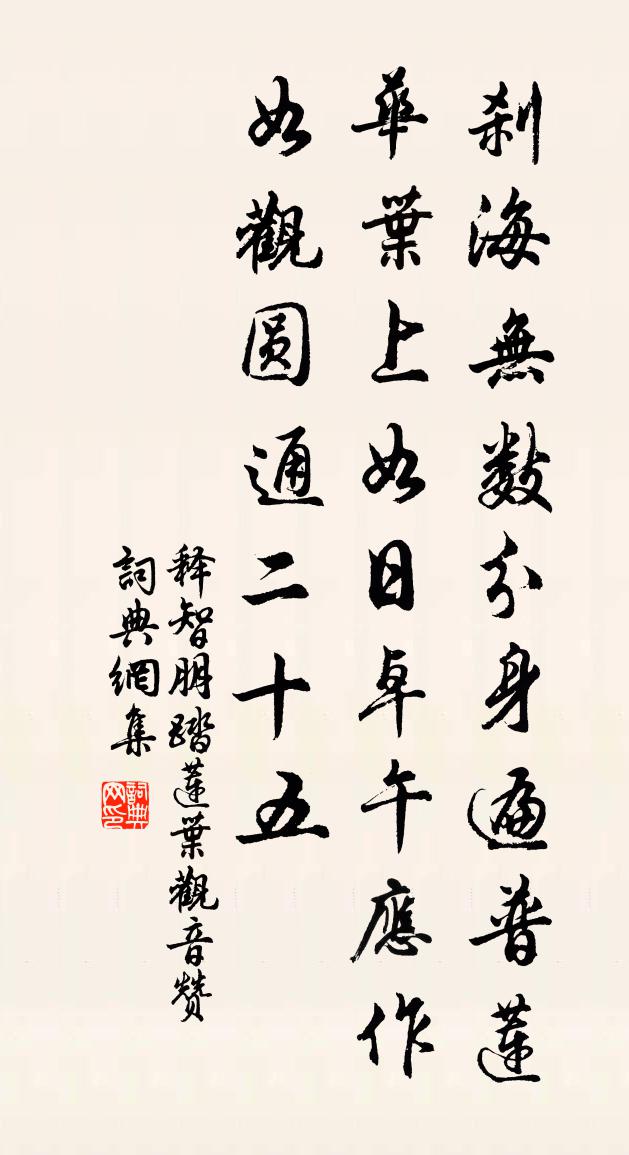 刹海無數分身遍普蓮
華葉上如日卓午應作
如觀圆通二十五
释智朋踏蓮葉觀音贊
詞典網集
詞典网印